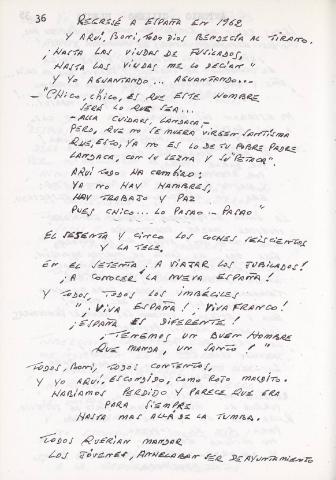 36
REGRESÉ A ESPAÑA EN 1968
Y AQUÍ, BONI, TODO DIOS BENDECÍA AL TIRANO.
¡HASTA LAS VIUDAS DE FUSILADOS,
HASTA LAS VIUDAS ME LO DECÍAN"
Y YO AGUANTANDO... AGUANTANDO...
-"CHICO, CHICO, ES QUE ESTE HOMBRE
SERÁ LO QUE SEA...
-ALLA CUIDAOS, LANDACA-
PERO, QUE NO SE MUERA VIRGEN SANTÍSIMA
QUE, ESTO, YA NO ES LO DE TU POBRE PADRE
LANDACA, CON SU LEZNA Y SU "PETACA".
AQUI TODO HA CAMBIAO:
YA NO HAY HAMBRES,
HAY TRABAJO Y PAZ
PUES CHICO... LO PASAO - PASAO"
EL SESENTA Y CINCO LOS COCHES SEISCIENTOS
Y LA TELE,
EN EL SETENTA: A VIAJAR LOS JUBILADOS!
¡A CONOCER LA NUEVA ESPAÑA!
Y TODOS, TODOS LOS IMBÉCILES
"¡VIVA ESPAÑA! ¡VIVA FRANCO!
¡ESPAÑA ES DIFERENTE!
¡TENEMOS UN BUEN HOMBRE
QUE MANDA, UN SANTO!"
TODOS, BONI, TODOS CONTENTOS,
Y YO AQUÍ, ESCONDIDO, COMO ROJO MALDITO.
HABÍAMOS PERDIDO Y PARECE QUE ERA
PARA SIEMPRE
HASTA MAS ALLÁ DE LA TUMBA.
TODOS QUERIAN MANDAR
LOS JÓVENES, ANHELABAN SER DE AYUNTAMIENTO